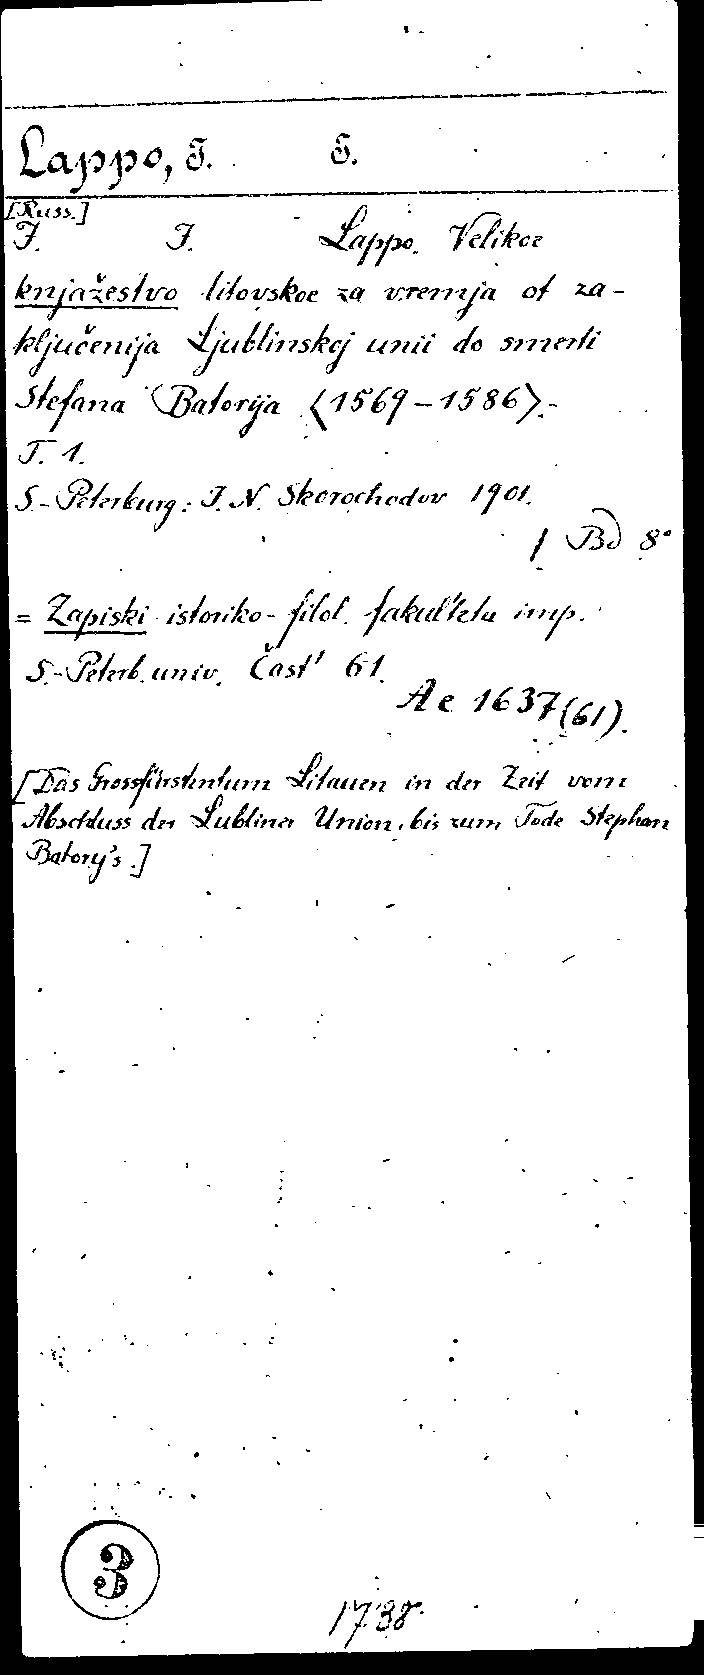 Lappo, I. I.
[Russ.]
I. I. Lappo. Velikoe
knjažestvo litovskoe za vremja ot za-
ključenija Ljublinskoj unii do smerti
Stefana Batorija <1569-1586>.-
T. 1.
S.-Peterburg: I. N. Skorochodov 1901.
1 Bd 8°
= Zapiski istoriko-filol. fakul'teta imp.
S.-Peterb. univ. Čast' 61.
Ae 1637(61).
[Das Grossfürstentum Litauen in der Zeit vom
Abschluss der Lubliner Union bis zum Tode Stephan
Batory's.]
3
1738